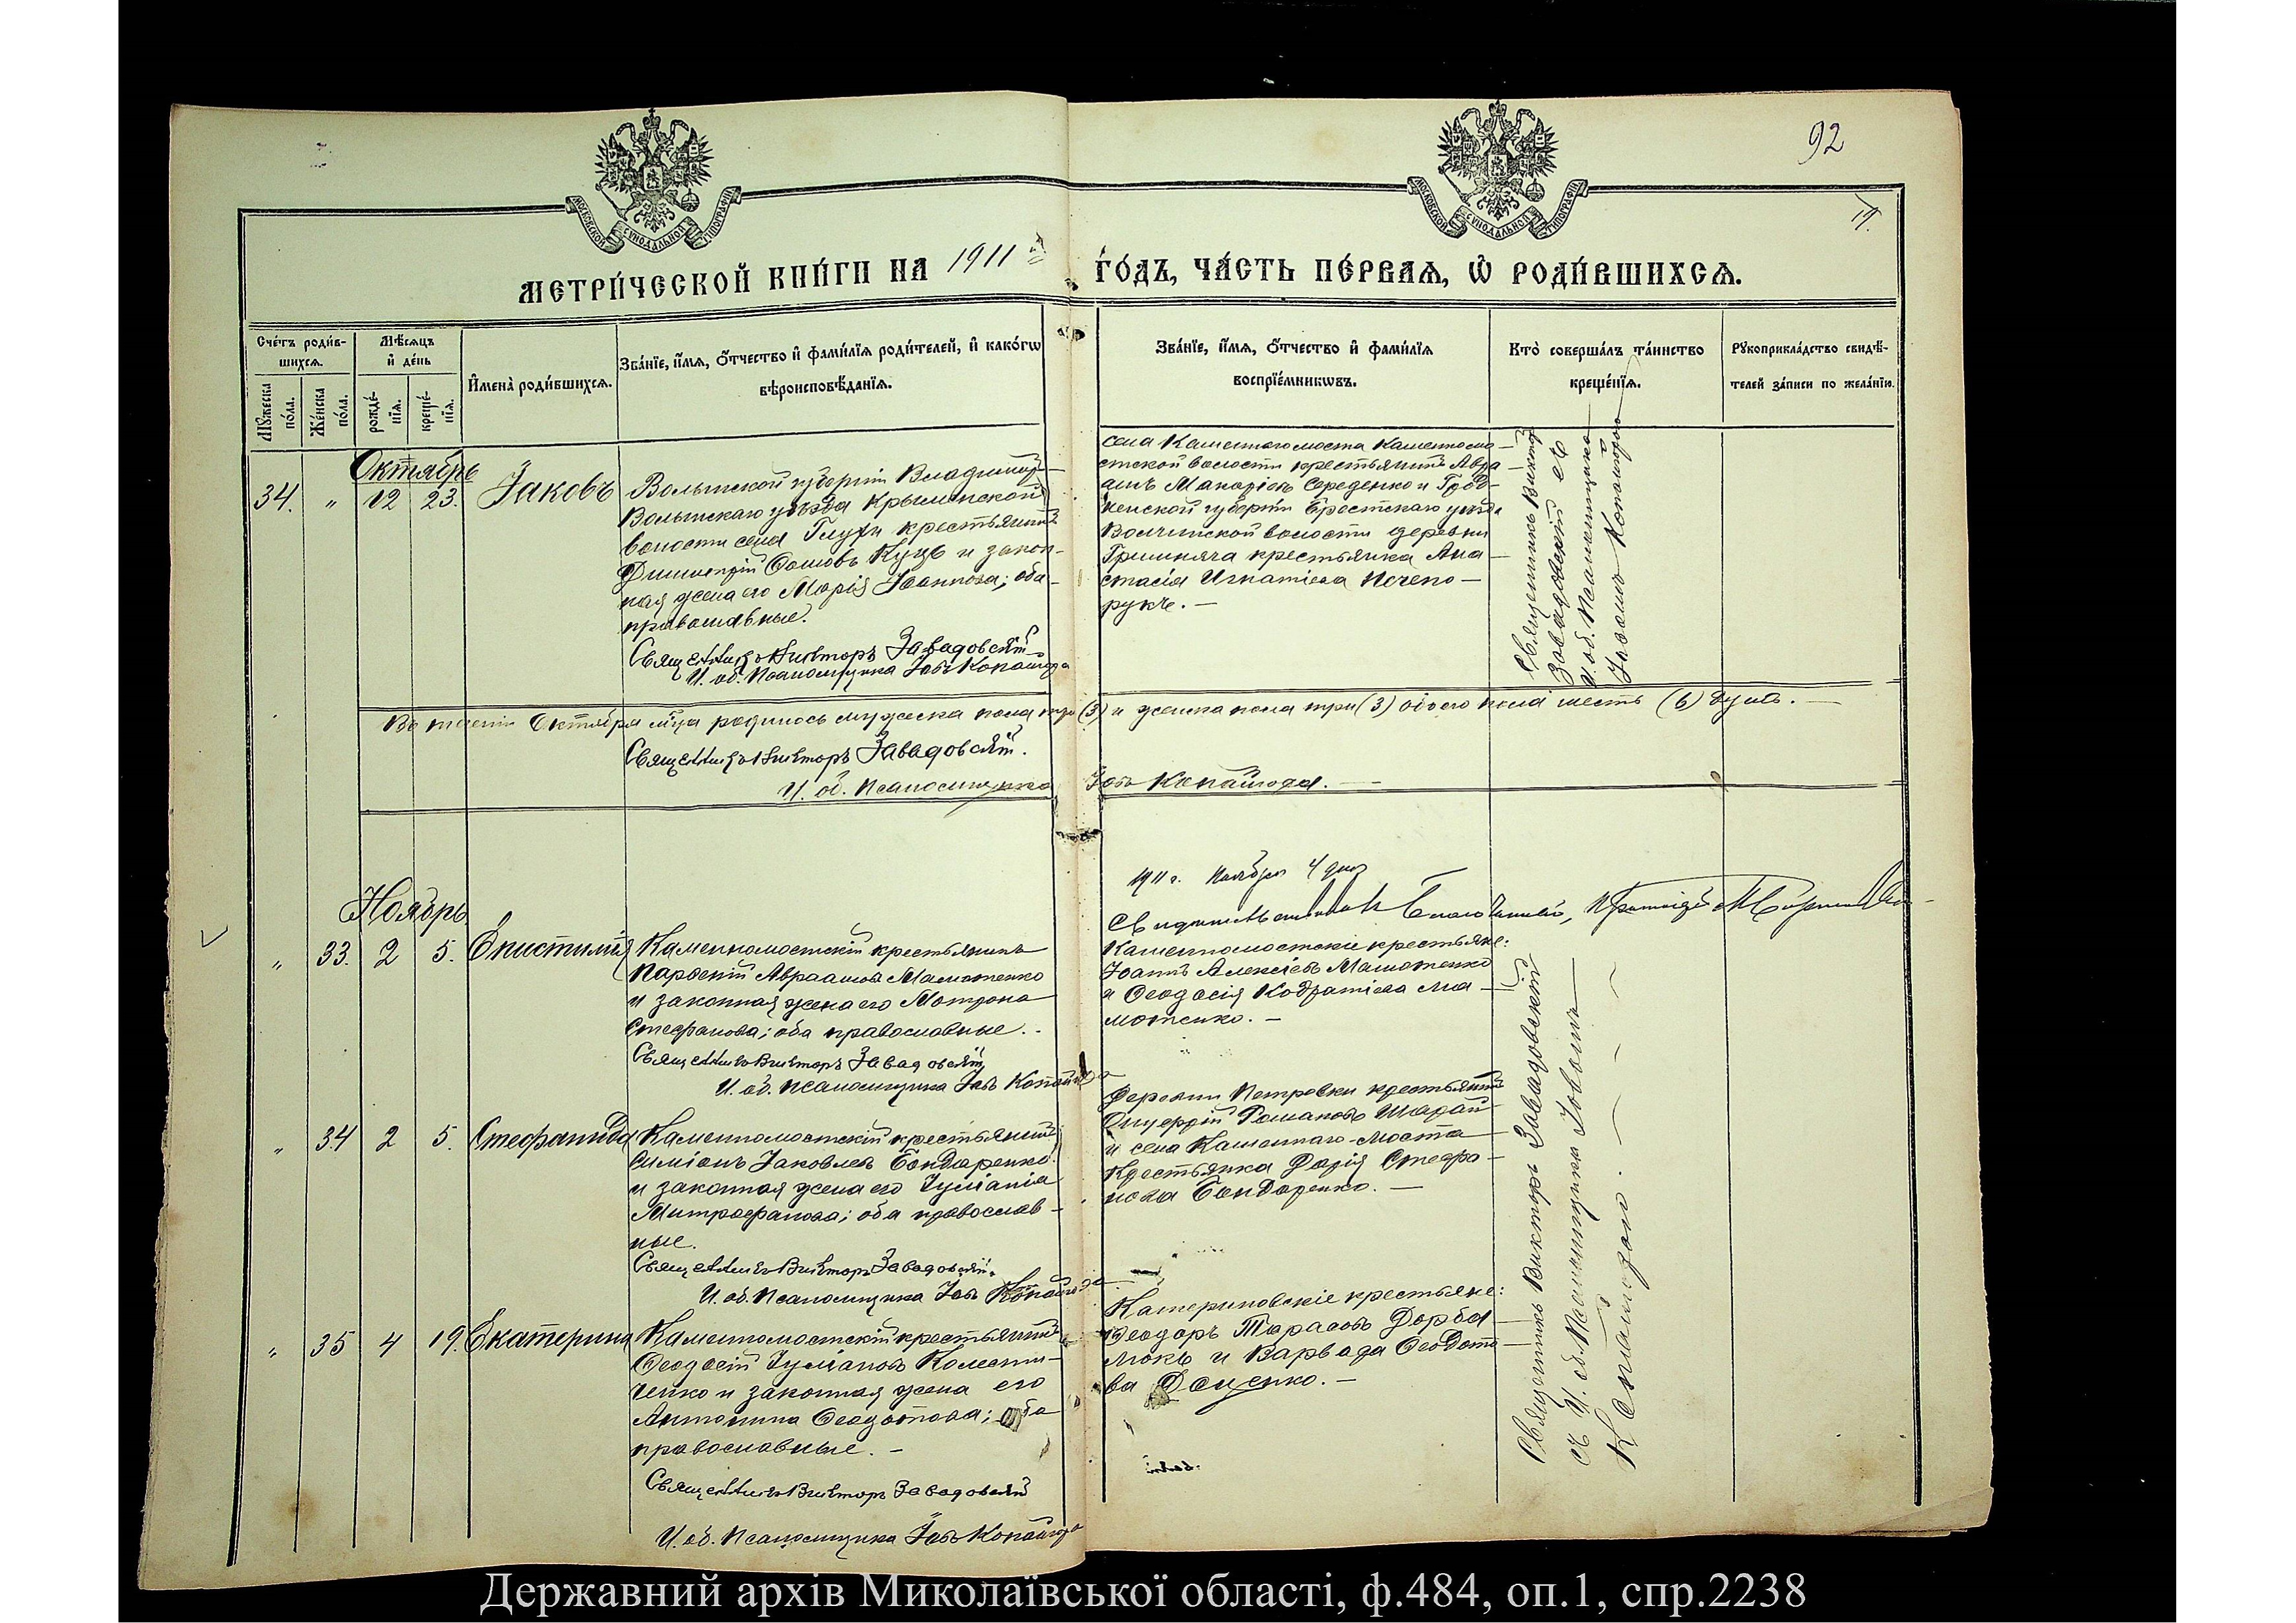 92
МОСКОВСКОЙ СѴНОДАЛЬНОЙ ТИПОГРАФІИ
МОСКОВСКОЙ СѴНОДАЛЬНОЙ ТИПОГРАФІИ
МЕТРИ́ЧЕСКОЙ КНИ́ГИ НА 1911 ГО́ДЪ, ЧА́СТЬ ПЕ́РВАѦ, Ѽ РОДИ́ВШИХСѦ.
Сче́тъ роди́в-
шихсѧ.
Мꙋ́жеска по́ла.
Же́нска по́ла.
Мѣ́сѧцъ
и҆ де́нь
рожде́-
нїѧ.
креще́-
нїѧ.
И҆мена̀ роди́вшихсѧ.
Зва́нїе, и҆́мѧ, ѻ҆́тчество и҆ фами́лїѧ роди́телей, и҆ како́гѡ
вѣроисповѣ́данїѧ.
Зва́нїе, и҆́мѧ, ѻ҆́тчество и҆ фами́лїѧ
воспрїе́мникѡвъ.
Кто̀ соверша́лъ та́инство
креще́нїѧ.
Рꙋкоприкла́дство свидѣ́-
телей за́писи по жела́нїю.
Октябрь
34. " 12 23. Іаковъ
Волынской губерніи Владимир-
Волынскаго уѣзда Крымнской
волости села Глухи крестьянинъ
Димитрій Ѳомовъ Куцъ и закон-
ная жена его Марія Іоаннова; оба
православные.
Священникъ Викторъ Завадовскій
И. об. Псаломщика Іовъ Копайгода
села Каменнаго моста Каменномо-
стской волости крестьянинъ Авра-
амъ Макаріевъ Середенко и Грод-
ненской губерніи Брестскаго уѣзда
Волчинской волости деревни
крестьянка Ана-
стасія Игнатіева Нечепо-
рукъ. —
Священникъ Викторъ
Завадовскій съ
и. об. Псаломщика
Іовомъ Копайгодою
Въ теченіи Октября м-ца родилось мужеска пола три (3) и женска пола три (3) обоего пола шесть (6) душъ. —
Священникъ Викторъ Завадовскій.
И. об. Псаломщика Іовъ Копайгода. —
1911 г. Ноября 4 дня
Ноябрь
" 33. 2 5. Епистимія
Каменномостскій крестьянинъ
Парѳеній Авраамовъ Мамотенко
и законная жена его Матрона
Стефанова; оба православные. -
Священникъ Викторъ Завадовскій
И. об. Псаломщика Іовъ Копайгода
Каменномостскіе крестьяне:
Іоаннъ Алексіевъ Мамотенко
и Ѳеодосія Кодратіева Ма-
мотенко. —
" 34 2 5. Стефанида
Каменномостскій крестьянинъ
Симіонъ Іаковлевъ Бондаренко
и законная жена его Іуліанія
Митрофанова; оба православ-
ные.
Священникъ Викторъ Завадовскій.
И. об. Псаломщика Іовъ Копайгода
деревни Петровки крестьянинъ
Онуфрій Романовъ Шарай
и села Каменнаго-Моста
крестьянка Дарія Стефа-
нова Бондаренко. —
" 35 4 19. Екатерина
Каменномостскій крестьянинъ
Ѳеодосій Іуліановъ Коменти-
ченко и законная жена его
Антонина Ѳеодотова; оба
православные. —
Священникъ Викторъ Завадовскій
И. об. Псаломщика Іовъ Копайгода
Катериновскіе крестьяне:
Ѳеодоръ Тарасовъ Дорба-
люкъ и Варвара Ѳеодото-
ва Доценко. —
Священникъ Викторъ Завадовскій
съ И. об. Псаломщика Іовомъ
Копайгодою.
Державний архів Миколаївської області, ф.484, оп.1, спр.2238